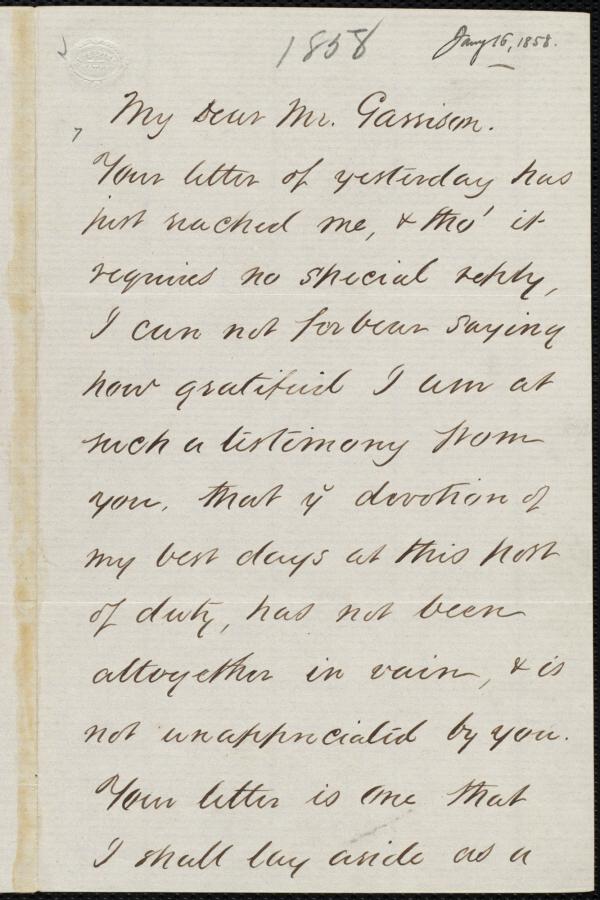 1858 Jany 16, 1858.
My Dear Mr. Garrison.
Your letter of yesterday has
just reached me, & tho' it
requires no special reply,
I can not forbear saying
how gratified I am at
such a testimony from
you, that ye devotion of
my best days at this post
of duty, has not been
altogether in vain, & is
not unappreciated by you.
Your letter is one that
I shall lay aside as a